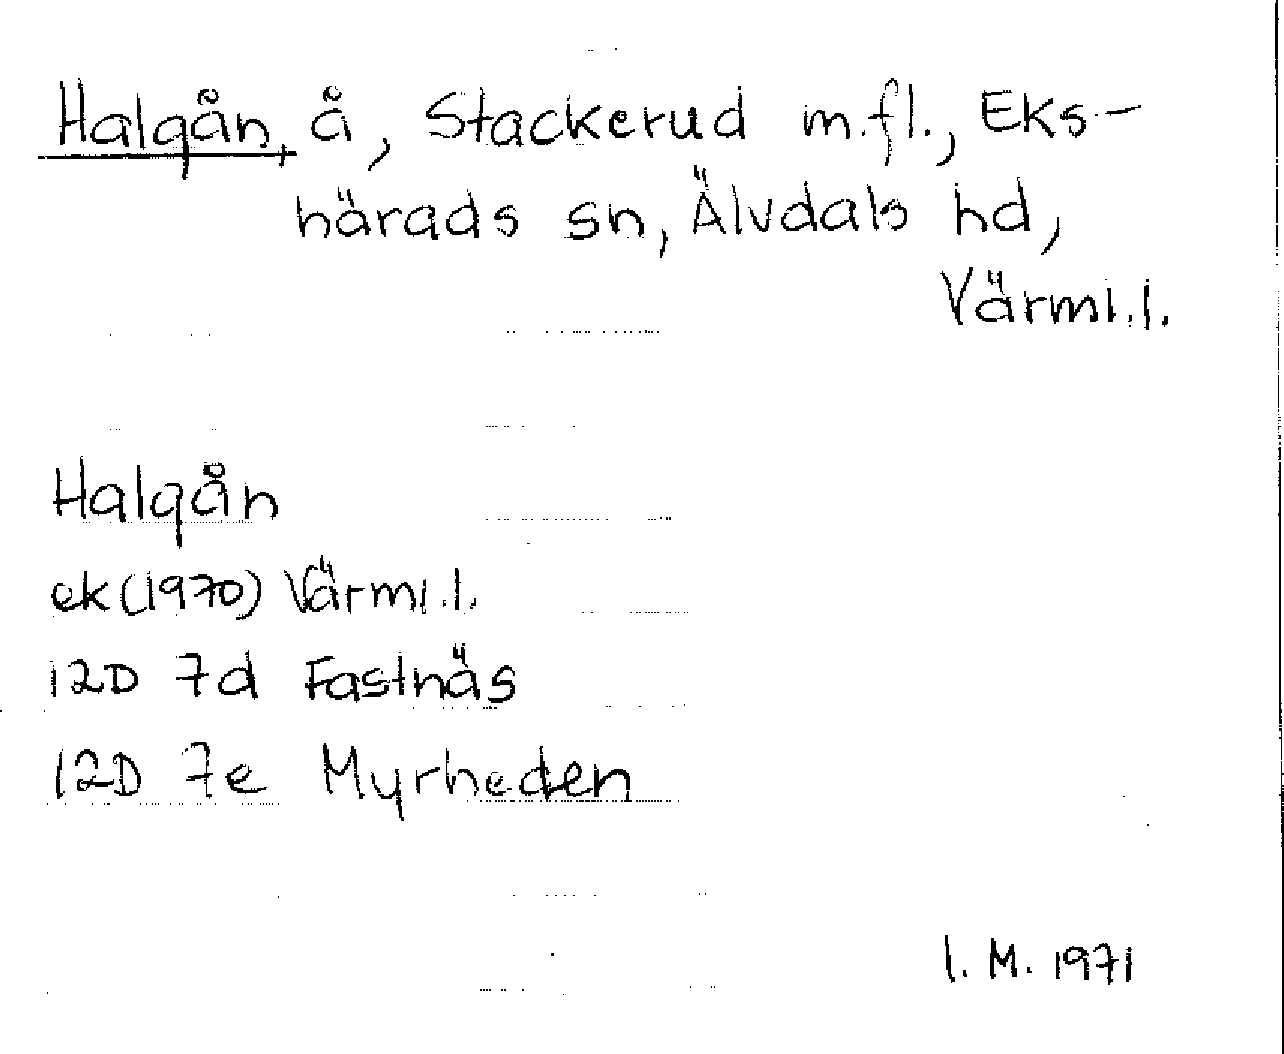 Halgån, å, Stackerud m.fl., Eks-
härads sn, Älvdals hd,
Värml.l.
Halgån
ek (1970) Värml.l.
12D 7d Fastnäs
12D 7e Myrheden
I. M. 1971